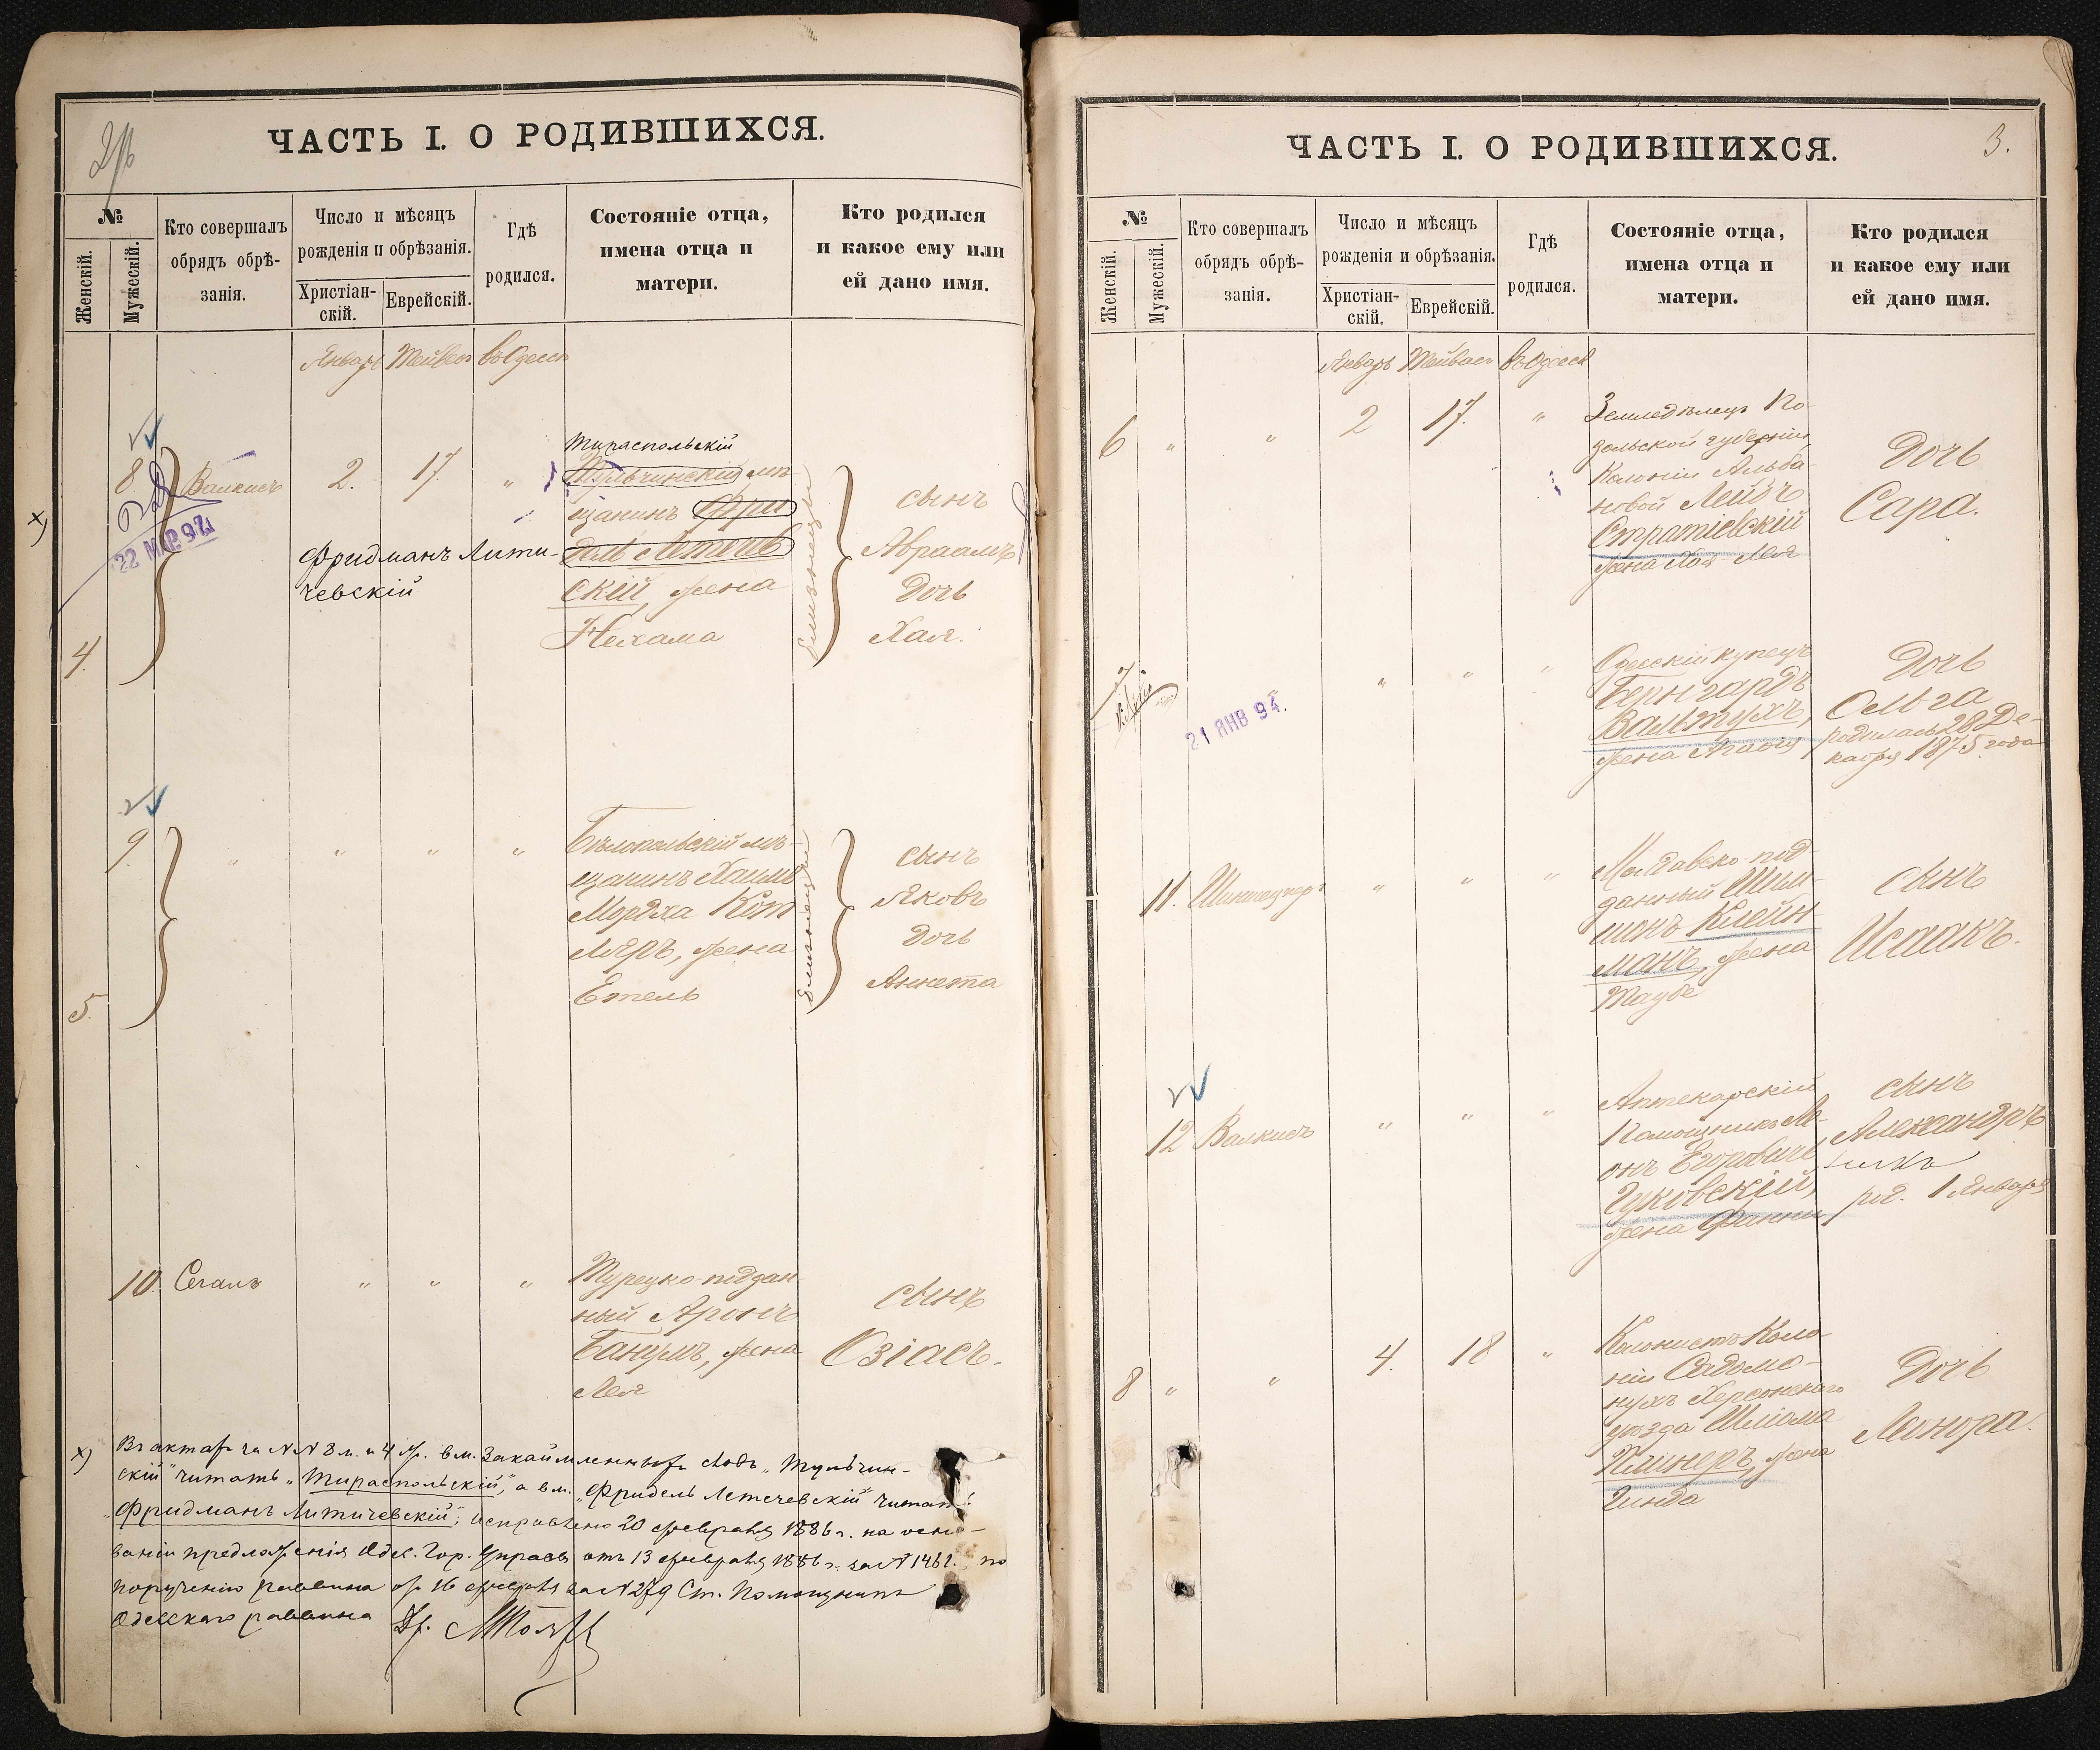 ЧАСТЬ I. О РОДИВШИХСЯ.
№
Женскій.
Мужескій.
Кто совершалъ
обрядъ обрѣ-
занія.
Число и мѣсяцъ
рожденія и обрѣзанія.
Христіан-
скій.
Еврейскій.
Гдѣ
родился.
Состояніе отца,
имена отца и
матери.
Кто родился
и какое ему или
ей дано имя.
Январь Тейвес въ Одессѣ
8. Валкисъ 2. 17. "
22 МАР 92
х)
4.
Тираспольскій
Тульчинскій мѣ-
щанинъ Фри
дель Летече
скій, жена
Нехама
Фридманъ Литичевскій
близнецы
сынъ
Авраамъ
Дочь
Хая.
9. " " " "
5.
Бѣлопольскій мѣ-
щанинъ Хаимъ
Мордха Кот
ляръ, жена
Етель
близнецы
сынъ
Яковъ
Дочь
Аннета
10. Сегалъ " " "
Турецко-поддан-
ный Аронъ
Банулъ, жена
Лея
сынъ
Озіасъ.
х) Въ актахъ за №№ 8 м. и 4 ж. вм. закаймленныхъ словъ „Тульчин-
скій" читать „Тираспольскій", а вм. „Фридель Летечевскій" читать:
„Фридманъ Литичевскій"; исправлено 20 февраля 1886 г. на осно-
ваніи предложенія Одес. Гор. Управы отъ 13 февраля 1886 г. за № 1462. по
порученію раввина отъ 16 февраля за № 279 Ст. Помощникъ
Одесскаго раввина Др.
ЧАСТЬ I. О РОДИВШИХСЯ.
3.
№
Женскій.
Мужескій.
Кто совершалъ
обрядъ обрѣ-
занія.
Число и мѣсяцъ
рожденія и обрѣзанія.
Христіан-
скій.
Еврейскій.
Гдѣ
родился.
Состояніе отца,
имена отца и
матери.
Кто родился
и какое ему или
ей дано имя.
Январь Тейвес въ Одессѣ
6 " " 2 17. "
Земледѣлецъ По-
дольской губерніи
Колоніи Альба-
новой Лейбъ
Стратіевскій
жена Хая-Лея
Дочь
Сара.
7 " " "
21 ЯНВ 94.
Одесскій купецъ
Бернгардъ
Вальтухъ,
жена
Дочь
Ольга
родилась 28 Де-
кабря 1875 года
11. " " "
Молдавско-под-
данный Шим-
шонъ Клейн-
манъ, жена
Таубе
сынъ
Исаакъ.
12 Валкисъ " " "
Аптекарскій
Помощникъ Ле-
онъ Егоровичъ
Чуковскій,
жена Фанни
сынъ
Александръ
род. 1 Января
8 " " 4. 18 "
Колонистъ Коло-
ніи
Херсонскаго
уѣзда Шліома
жена
Гинда
Дочь
Леонора.